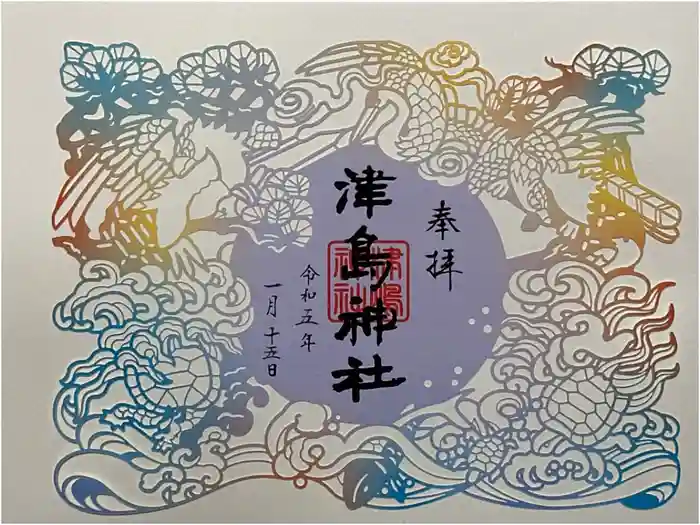 奉拝
津島神社
津島
神社
令和五年
一月十五日